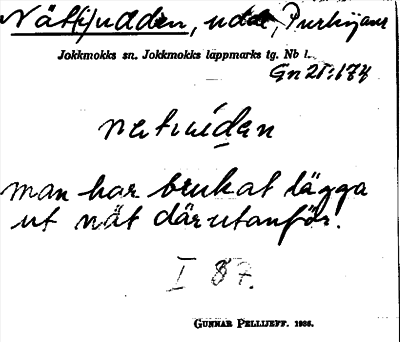 Nät(i)udden, udde, Purkijaur
Jokkmokks sn. Jokkmokks lappmarks tg. Nb l.
Gn 21:174
man har brukat lägga
ut nät därutanför.
I 87.
GUNNAR PELLIJEFF. 1936.